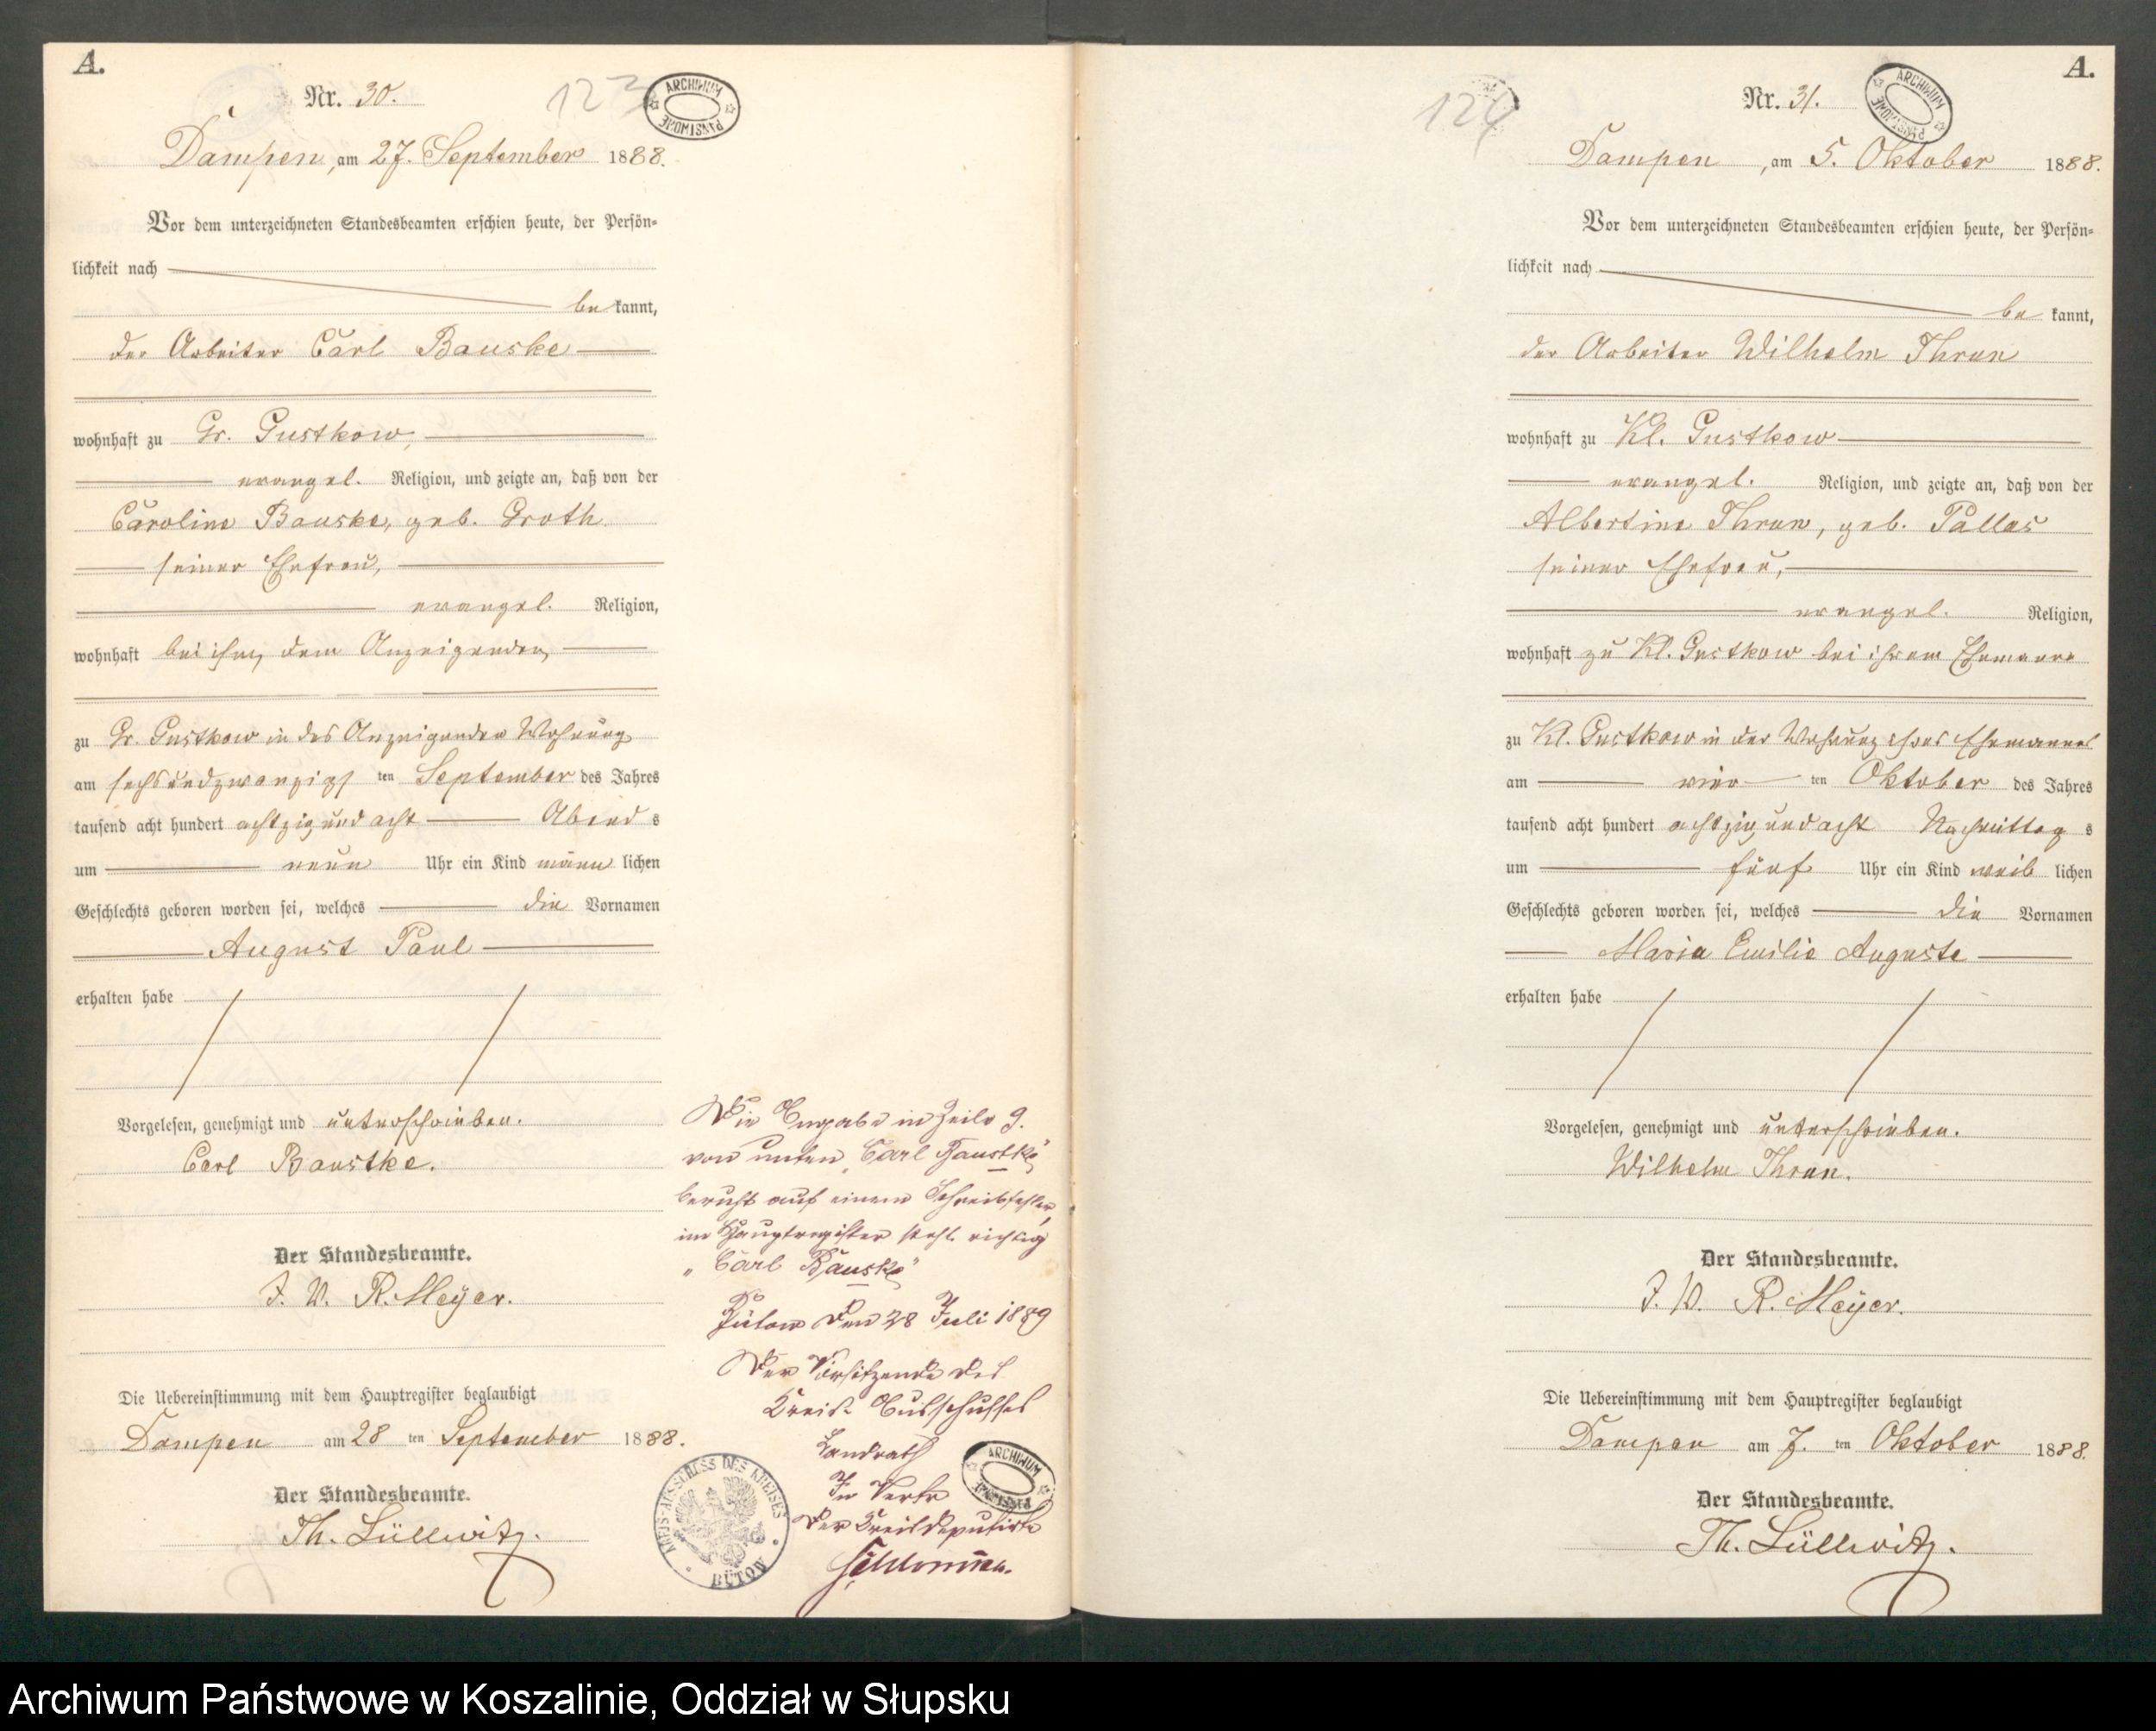 A.
Nr. 30.
123
ARCHIWUM PAŃSTWOWE
Dampen, am 27. September 1888.
Vor dem unterzeichneten Standesbeamten erschien heute, der Persön-
lichkeit nach
be kannt,
der Arbeiter Carl Bauske
wohnhaft zu Gr. Gustkow,
evangel. Religion, und zeigte an, daß von der
Caroline Bauske, geb. Groth
seiner Ehefrau,
evangel. Religion,
wohnhaft bei ihm, dem Anzeigenden,
zu Gr. Gustkow in des Anzeigenden Wohnung
am sechsundzwanzigs ten September des Jahres
tausend acht hundert achtzig und acht Abend s
um neun Uhr ein Kind männ lichen
Geschlechts geboren worden sei, welches die Vornamen
August Paul
erhalten habe
Vorgelesen, genehmigt und unterschrieben.
Carl Baustke.
Der Standesbeamte.
J. V. R. Meyer.
Die Uebereinstimmung mit dem Hauptregister beglaubigt
Dampen am 28 ten September 1888.
Der Standesbeamte.
Th. Lüllwitz.
Die Angabe in Zeile 9.
von unten "Carl Baustke"
beruht auf einem Schreibfehler,
im Hauptregister steht richtig
"Carl Bauske"
Bütow den 28 Juli 1889
Der Vorsitzende des
Kreis-Ausschusses
Landrath
In Vertr
Der Kreisdeputirte
KREIS-AUSSCHUSS DES KREISES BÜTOW
ARCHIWUM PAŃSTWOWE
A.
Nr. 31.
124
ARCHIWUM PAŃSTWOWE
Dampen, am 5. Oktober 1888.
Vor dem unterzeichneten Standesbeamten erschien heute, der Persön-
lichkeit nach
be kannt,
der Arbeiter Wilhelm Thrun
wohnhaft zu Kl. Gustkow
evangel. Religion, und zeigte an, daß von der
Albertine Thrun, geb. Pallas
seiner Ehefrau,
evangel. Religion,
wohnhaft zu Kl. Gustkow bei ihrem Ehemanne
zu Kl. Gustkow in der Wohnung ihres Ehemannes
am vier ten Oktober des Jahres
tausend acht hundert achtzig und acht Nachmittag s
um fünf Uhr ein Kind weib lichen
Geschlechts geboren worden sei, welches die Vornamen
Maria Emilie Auguste
erhalten habe
Vorgelesen, genehmigt und unterschrieben.
Wilhelm Thrun.
Der Standesbeamte.
J. V. R. Meyer.
Die Uebereinstimmung mit dem Hauptregister beglaubigt
Dampen am 7. ten Oktober 1888.
Der Standesbeamte.
Th. Lüllwitz.
Archiwum Państwowe w Koszalinie, Oddział w Słupsku